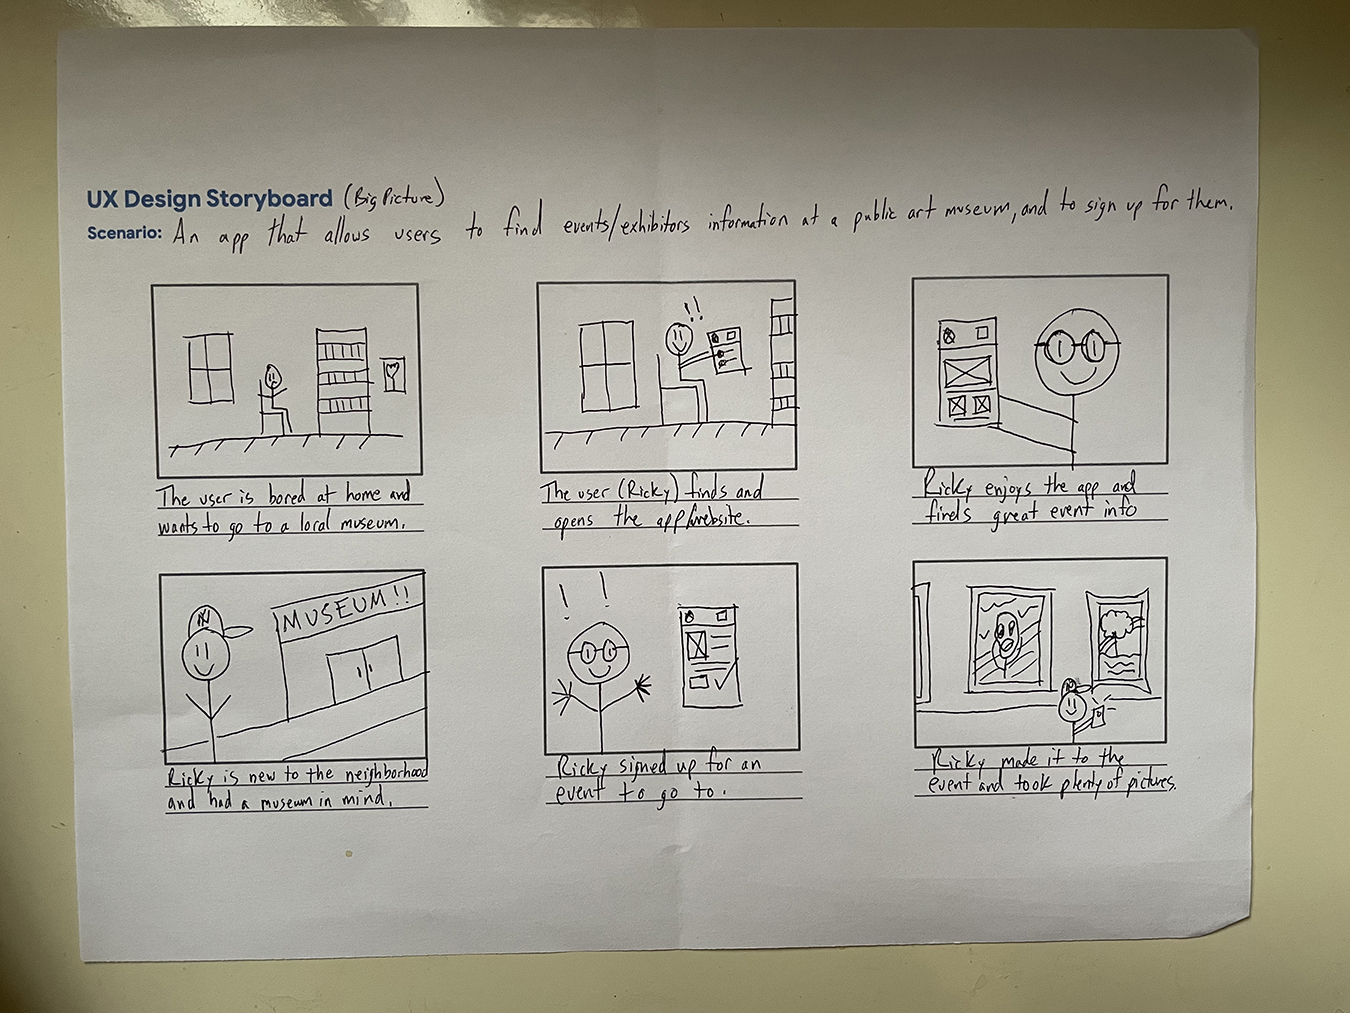 UX Design Storyboard (Big Picture)
Scenario: An app that allows users to find events/exhibitors information at a public art museum, and to sign up for them.
The user is bored at home and
wants to go to a loral museum.
The user (Ricky) finds and
opens the app/website.
Ricky enjoys the app and
finds great event info
MUSEUM!!
Ricky is new to the neighborhood
and had a museum in mind.
!!
! !
Ricky signed up for an
event to go to.
Ricky made it to the
event and took plenty of pictures.